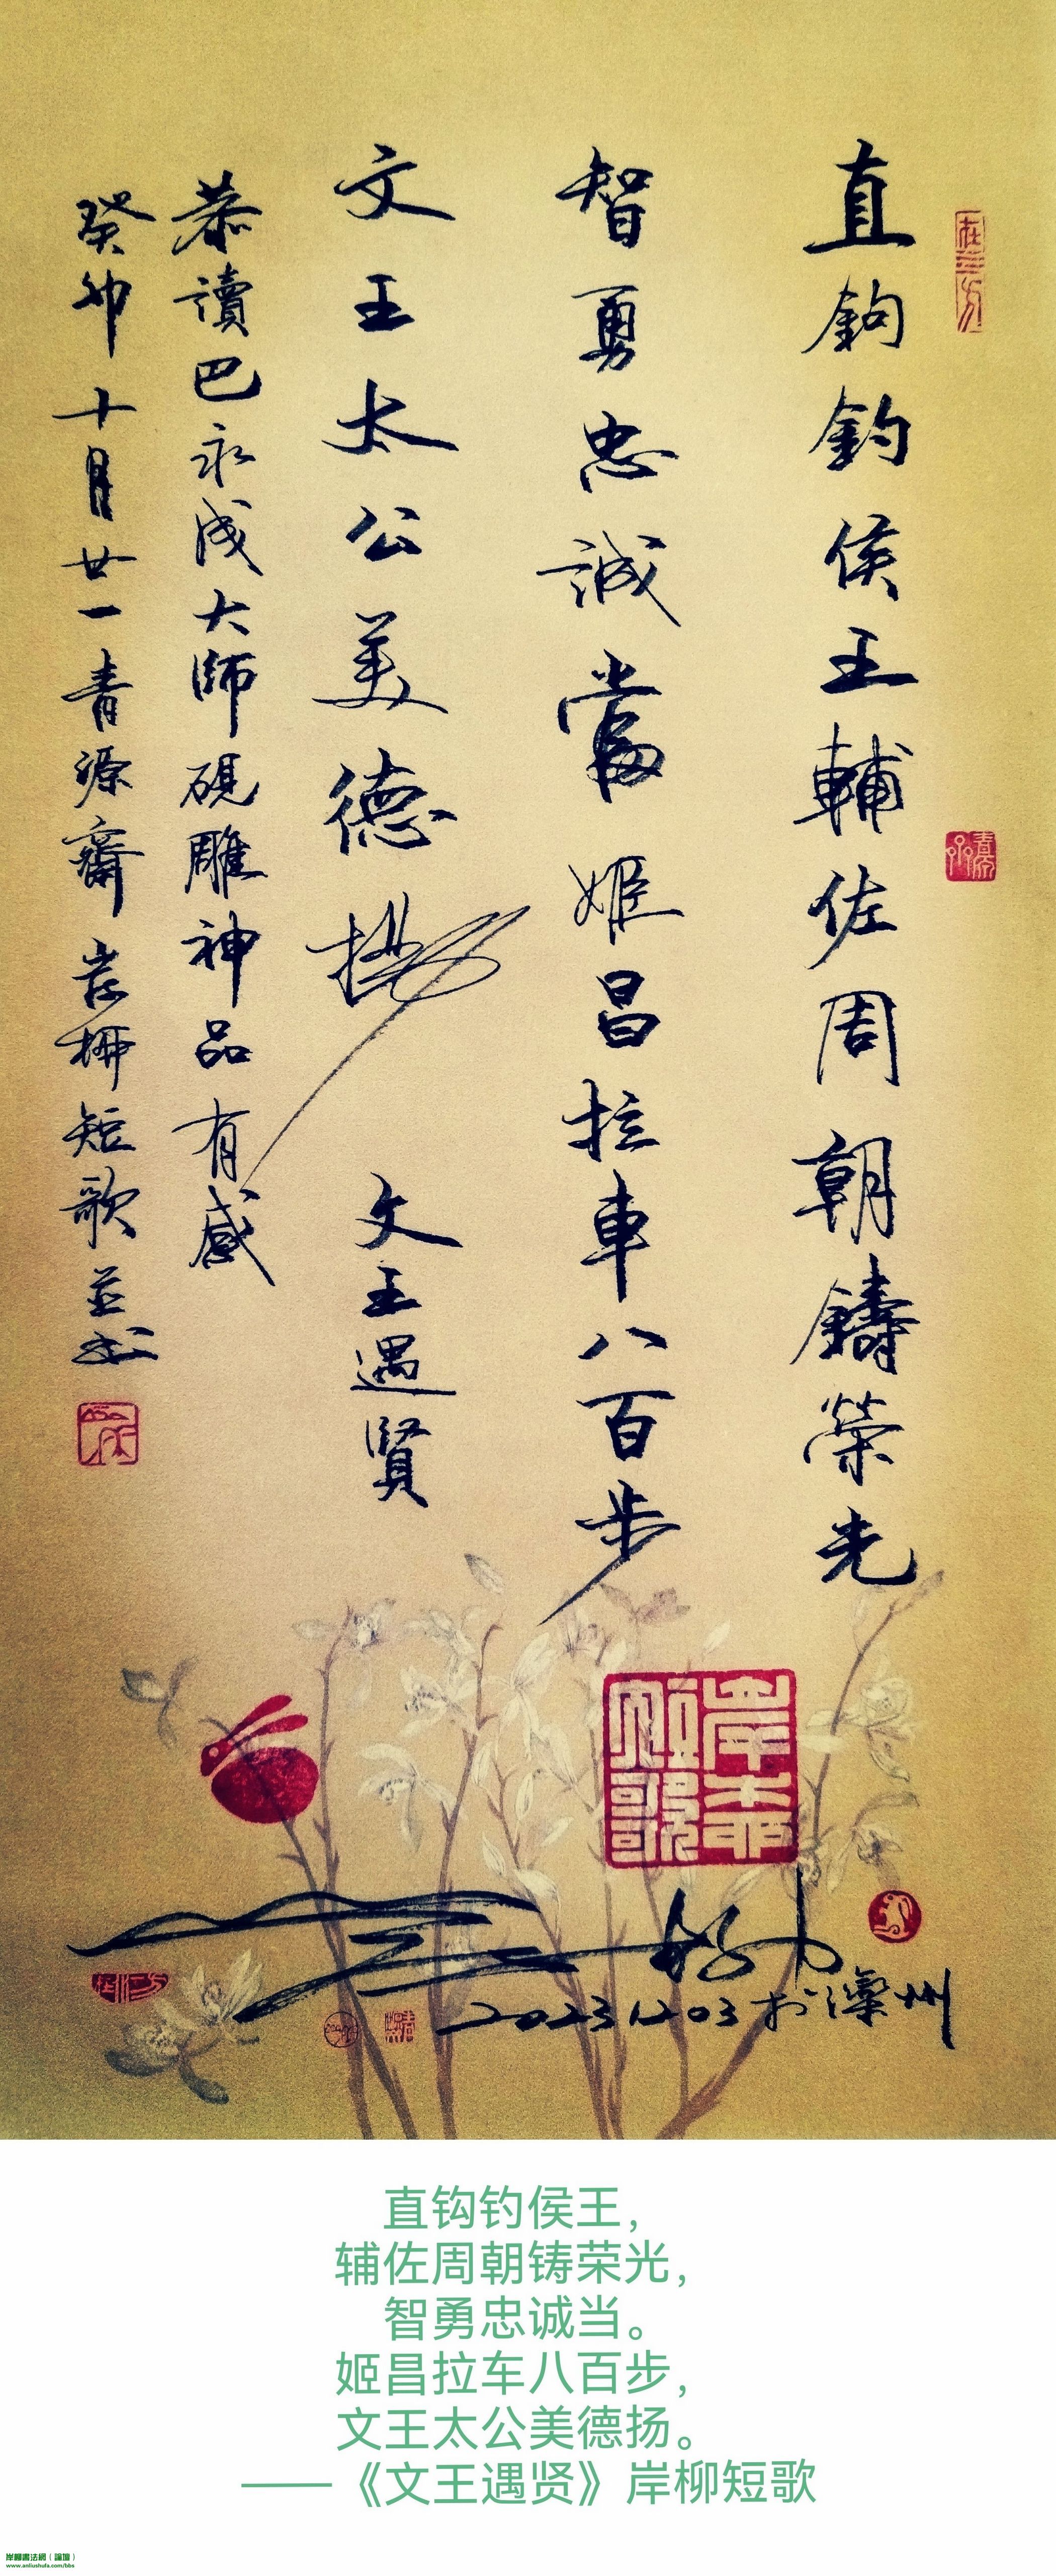 直鉤釣侯王輔佐周朝鑄榮光
智勇忠誠當姬昌拉車八百步
文王太公美德揚 文王遇賢
恭讀巴永成大师硯雕神品有感
癸卯十月廿一青源齋岸柳短歌並书
岸柳短歌
20231203於灤州
直钩钓侯王，
辅佐周朝铸荣光，
智勇忠诚当。
姬昌拉车八百步，
文王太公美德扬。
——《文王遇贤》岸柳短歌
岸柳書法網（論壇）
www.anliushufa.com/bbs